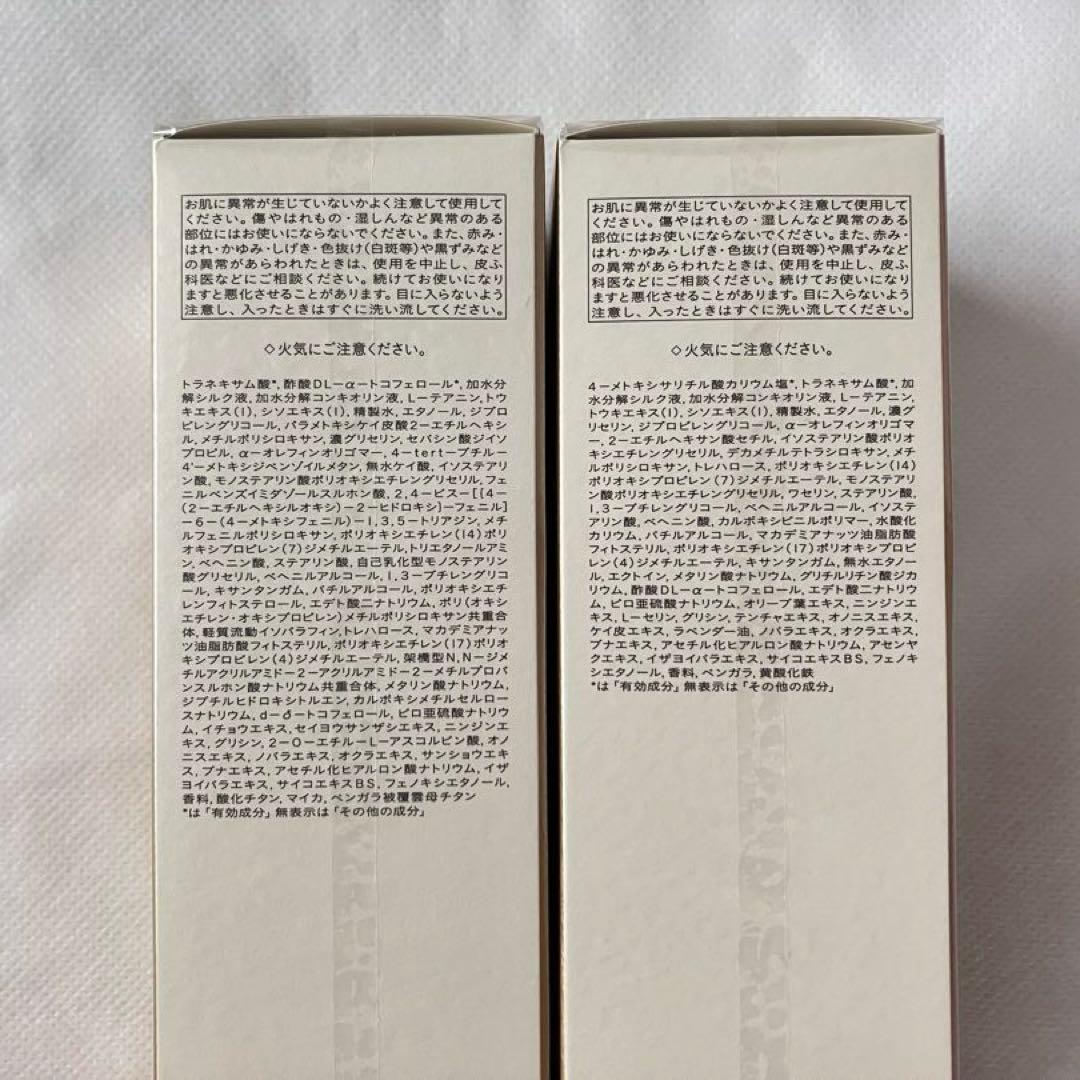 お肌に異常が生じていないかよく注意して使用して
ください。傷やはれもの・湿しんなど異常のある
部位にはお使いにならないでください。また、赤み・
はれ・かゆみ・しげき・色抜け(白斑等)や黒ずみなど
の異常があらわれたときは、使用を中止し、皮ふ
科医などにご相談ください。続けてお使いになり
ますと悪化させることがあります。目に入らないよう
注意し、入ったときはすぐに洗い流してください。
◇火気にご注意ください。
トラネキサム酸*, 酢酸DL－α－トコフェロール*, 加水分
解シルク液, 加水分解コンキオリン液, L－テアニン, トウ
キエキス(1), シソエキス(1), 精製水, エタノール, ジプロ
ピレングリコール, パラメトキシケイ皮酸2－エチルヘキシ
ル, メチルポリシロキサン, 濃グリセリン, セバシン酸ジイソ
プロピル, α－オレフィンオリゴマー, 4－tert－ブチル－
4'－メトキシジベンゾイルメタン, 無水ケイ酸, イソステアリ
ン酸, モノステアリン酸ポリオキシエチレングリセリル, フェ
ニルベンズイミダゾールスルホン酸, 2,4－ビス－[{4－
(2－エチルヘキシルオキシ)－2－ヒドロキシ}－フェニル]
－6－(4－メトキシフェニル)－1,3,5－トリアジン, メチ
ルフェニルポリシロキサン, ポリオキシエチレン(14)ポリ
オキシプロピレン(7)ジメチルエーテル, トリエタノールアミ
ン, ベヘニン酸, ステアリン酸, 自己乳化型モノステアリン
酸グリセリル, ベヘニルアルコール, 1,3－ブチレングリコ
ール, キサンタンガム, バチルアルコール, ポリオキシエチ
レンフィトステロール, エデト酸二ナトリウム, ポリ(オキシ
エチレン・オキシプロピレン)メチルポリシロキサン共重合
体, 軽質流動イソパラフィン, トレハロース, マカデミアナッ
ツ油脂肪酸フィトステリル, ポリオキシエチレン(17)ポリオ
キシプロピレン(4)ジメチルエーテル, 架橋型N,N－ジメ
チルアクリルアミド－2－アクリルアミド－2－メチルプロパ
ンスルホン酸ナトリウム共重合体, メタリン酸ナトリウム,
ジブチルヒドロキシトルエン, カルボキシメチルセルロー
スナトリウム, d－δ－トコフェロール, ピロ亜硫酸ナトリウ
ム, イチョウエキス, セイヨウサンザシエキス, ニンジンエ
キス, グリシン, 2－O－エチル－L－アスコルビン酸, オノ
ニスエキス, ノバラエキス, オクラエキス, サンショウエキ
ス, ブナエキス, アセチル化ヒアルロン酸ナトリウム, イザ
ヨイバラエキス, サイコエキスBS, フェノキシエタノール,
香料, 酸化チタン, マイカ, ベンガラ被覆雲母チタン
*は「有効成分」無表示は「その他の成分」
お肌に異常が生じていないかよく注意して使用して
ください。傷やはれもの・湿しんなど異常のある
部位にはお使いにならないでください。また、赤み・
はれ・かゆみ・しげき・色抜け(白斑等)や黒ずみなど
の異常があらわれたときは、使用を中止し、皮ふ
科医などにご相談ください。続けてお使いになり
ますと悪化させることがあります。目に入らないよう
注意し、入ったときはすぐに洗い流してください。
◇火気にご注意ください。
4－メトキシサリチル酸カリウム塩*, トラネキサム酸*, 加
水分解シルク液, 加水分解コンキオリン液, L－テアニン,
トウキエキス(1), シソエキス(1), 精製水, エタノール, 濃グ
リセリン, ジプロピレングリコール, α－オレフィンオリゴマ
ー, 2－エチルヘキサン酸セチル, イソステアリン酸ポリオ
キシエチレングリセリル, デカメチルテトラシロキサン, メチ
ルポリシロキサン, トレハロース, ポリオキシエチレン(14)
ポリオキシプロピレン(7)ジメチルエーテル, モノステアリ
ン酸ポリオキシエチレングリセリル, ワセリン, ステアリン酸,
1,3－ブチレングリコール, ベヘニルアルコール, イソステ
アリン酸, ベヘニン酸, カルボキシビニルポリマー, 水酸化
カリウム, バチルアルコール, マカデミアナッツ油脂肪酸
フィトステリル, ポリオキシエチレン(17)ポリオキシプロピ
レン(4)ジメチルエーテル, キサンタンガム, 無水エタノー
ル, エクトイン, メタリン酸ナトリウム, グリチルリチン酸ジカ
リウム, 酢酸DL－α－トコフェロール, エデト酸二ナトリウ
ム, ピロ亜硫酸ナトリウム, オリーブ葉エキス, ニンジンエ
キス, L－セリン, グリシン, テンチャエキス, オノニスエキス,
ケイ皮エキス, ラベンダー油, ノバラエキス, オクラエキス,
ブナエキス, アセチル化ヒアルロン酸ナトリウム, アセンヤ
クエキス, イザヨイバラエキス, サイコエキスBS, フェノキ
シエタノール, 香料, ベンガラ, 黄酸化鉄
*は「有効成分」無表示は「その他の成分」